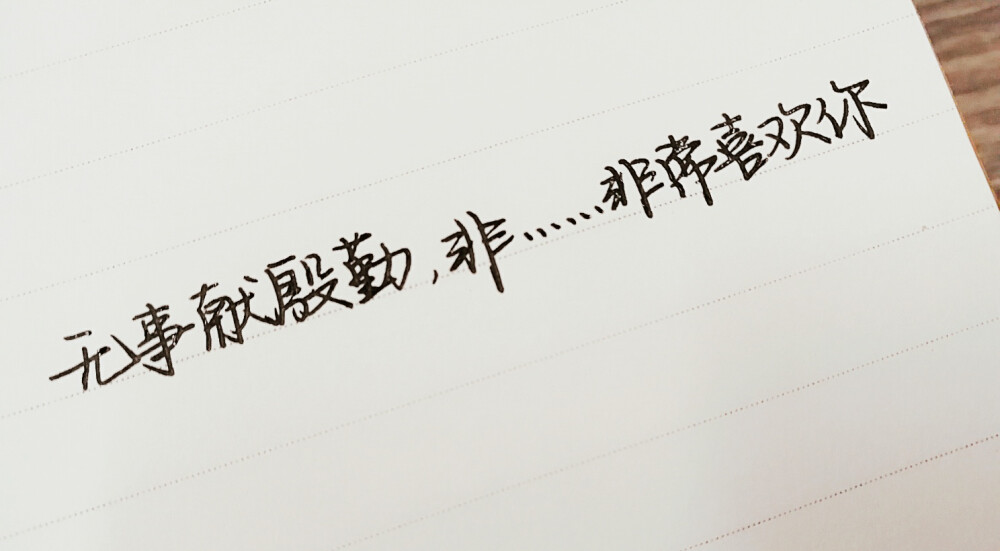 无事献殷勤，非……非常喜欢你